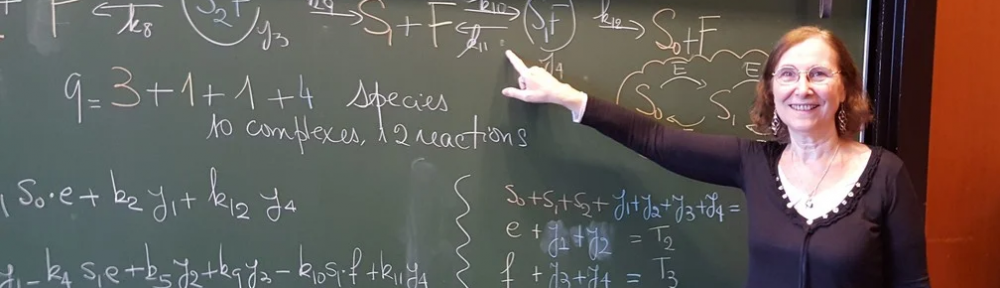 F ← k8 S2F y3 → S1 + F k10 ⇄ k11 S1F y4 k12 → S0 + F
9 = 3 + 1 + 1 + 4 species
10 complexes, 12 reactions
E E
S0 S1
s0·e + k2 y1 + k12 y4
y1 - k4 s1e + k5 y2 + k9 y3 - k10 s1·f + k11 y4
s0 + s1 + s2 + y1 + y2 + y3 + y4 =
e + y1 + y2 = T2
f + y3 + y4 = T3